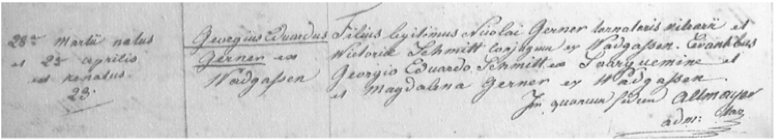 28va Martii natus
et 23 aprilis
est renatus.
23.
Georgius Eduardus
Gerner ex
Wadgassen
Filius legitimus Nicolai Gerner tornatoris vitrarii et
Victoriæ Schmitt conjugum ex Wadgassen. Levantibus
Georgio Eduardo Schmitt ex Sarguemine et
et Magdalena Gerner ex Wadgassen.
In quorum fidem Altmayer
adm: